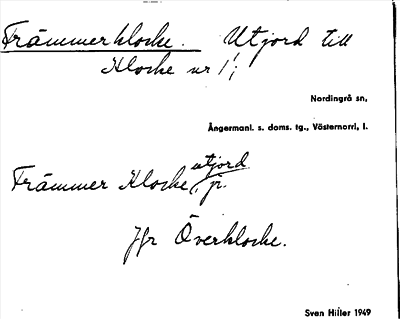 Främmerklocke. Utjord till
Klocke nr 1;
Nordingrå sn,
Ångermanl. s. doms. tg., Västernorrl, l.
utjord
Främmer Klocke, p.
Jfr Överklocke.
Sven Hiller 1949